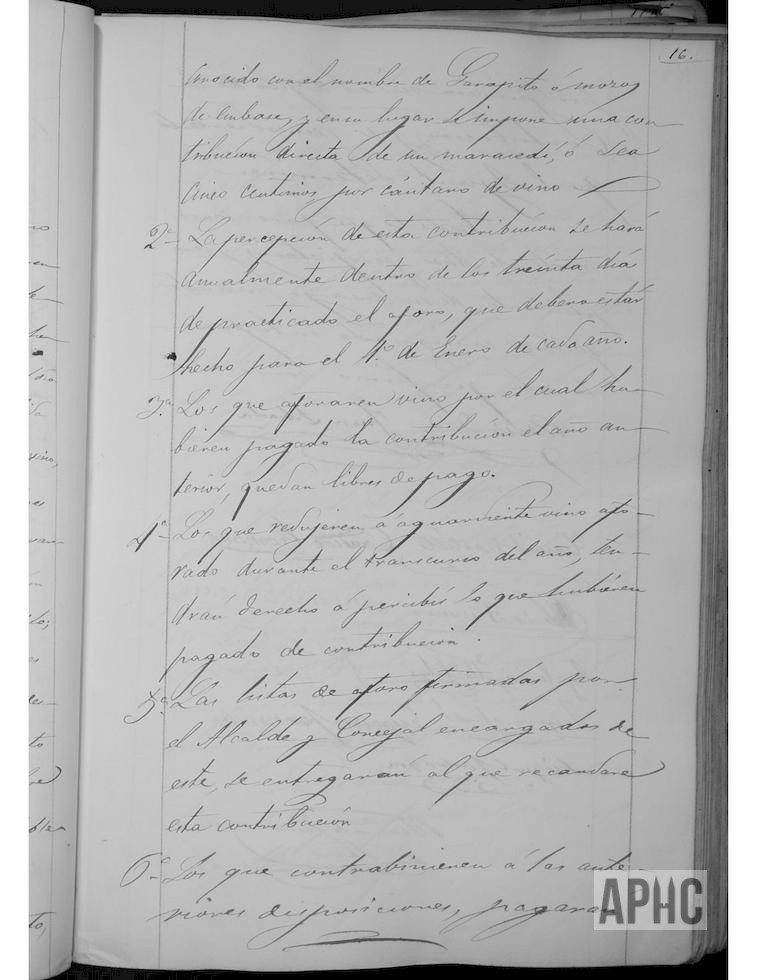 16.
conocido con el nombre de Garapito ó mozos
de embase, y en su lugar se impone una con
tribucion directa de un maravedí, ó sea
cinco centimos por cántaro de vino
2ª La percepción de esta contribucion se hará
anualmente dentro de los treinta dia
de practicado el aforo, que debera estar
hecho para el 1.º de Enero de cada año.
3ª Los que aforaren vino por el cual hu-
bieren pagado la contribucion el año an-
terior, quedan libres de pago.
4ª Los que redujeren a aguardiente vino afo-
rado durante el transcurso del año, ten-
drán derecho á percibir lo que hubieren
pagado de contribucion.
5ª Las listas de aforo firmadas por
el Alcalde y Concejal encargados de
este, se entregarán al que recaudare
esta contribución
6ª Los que contrabinieren á las ante-
riores disposiciones, pagaran
APHC